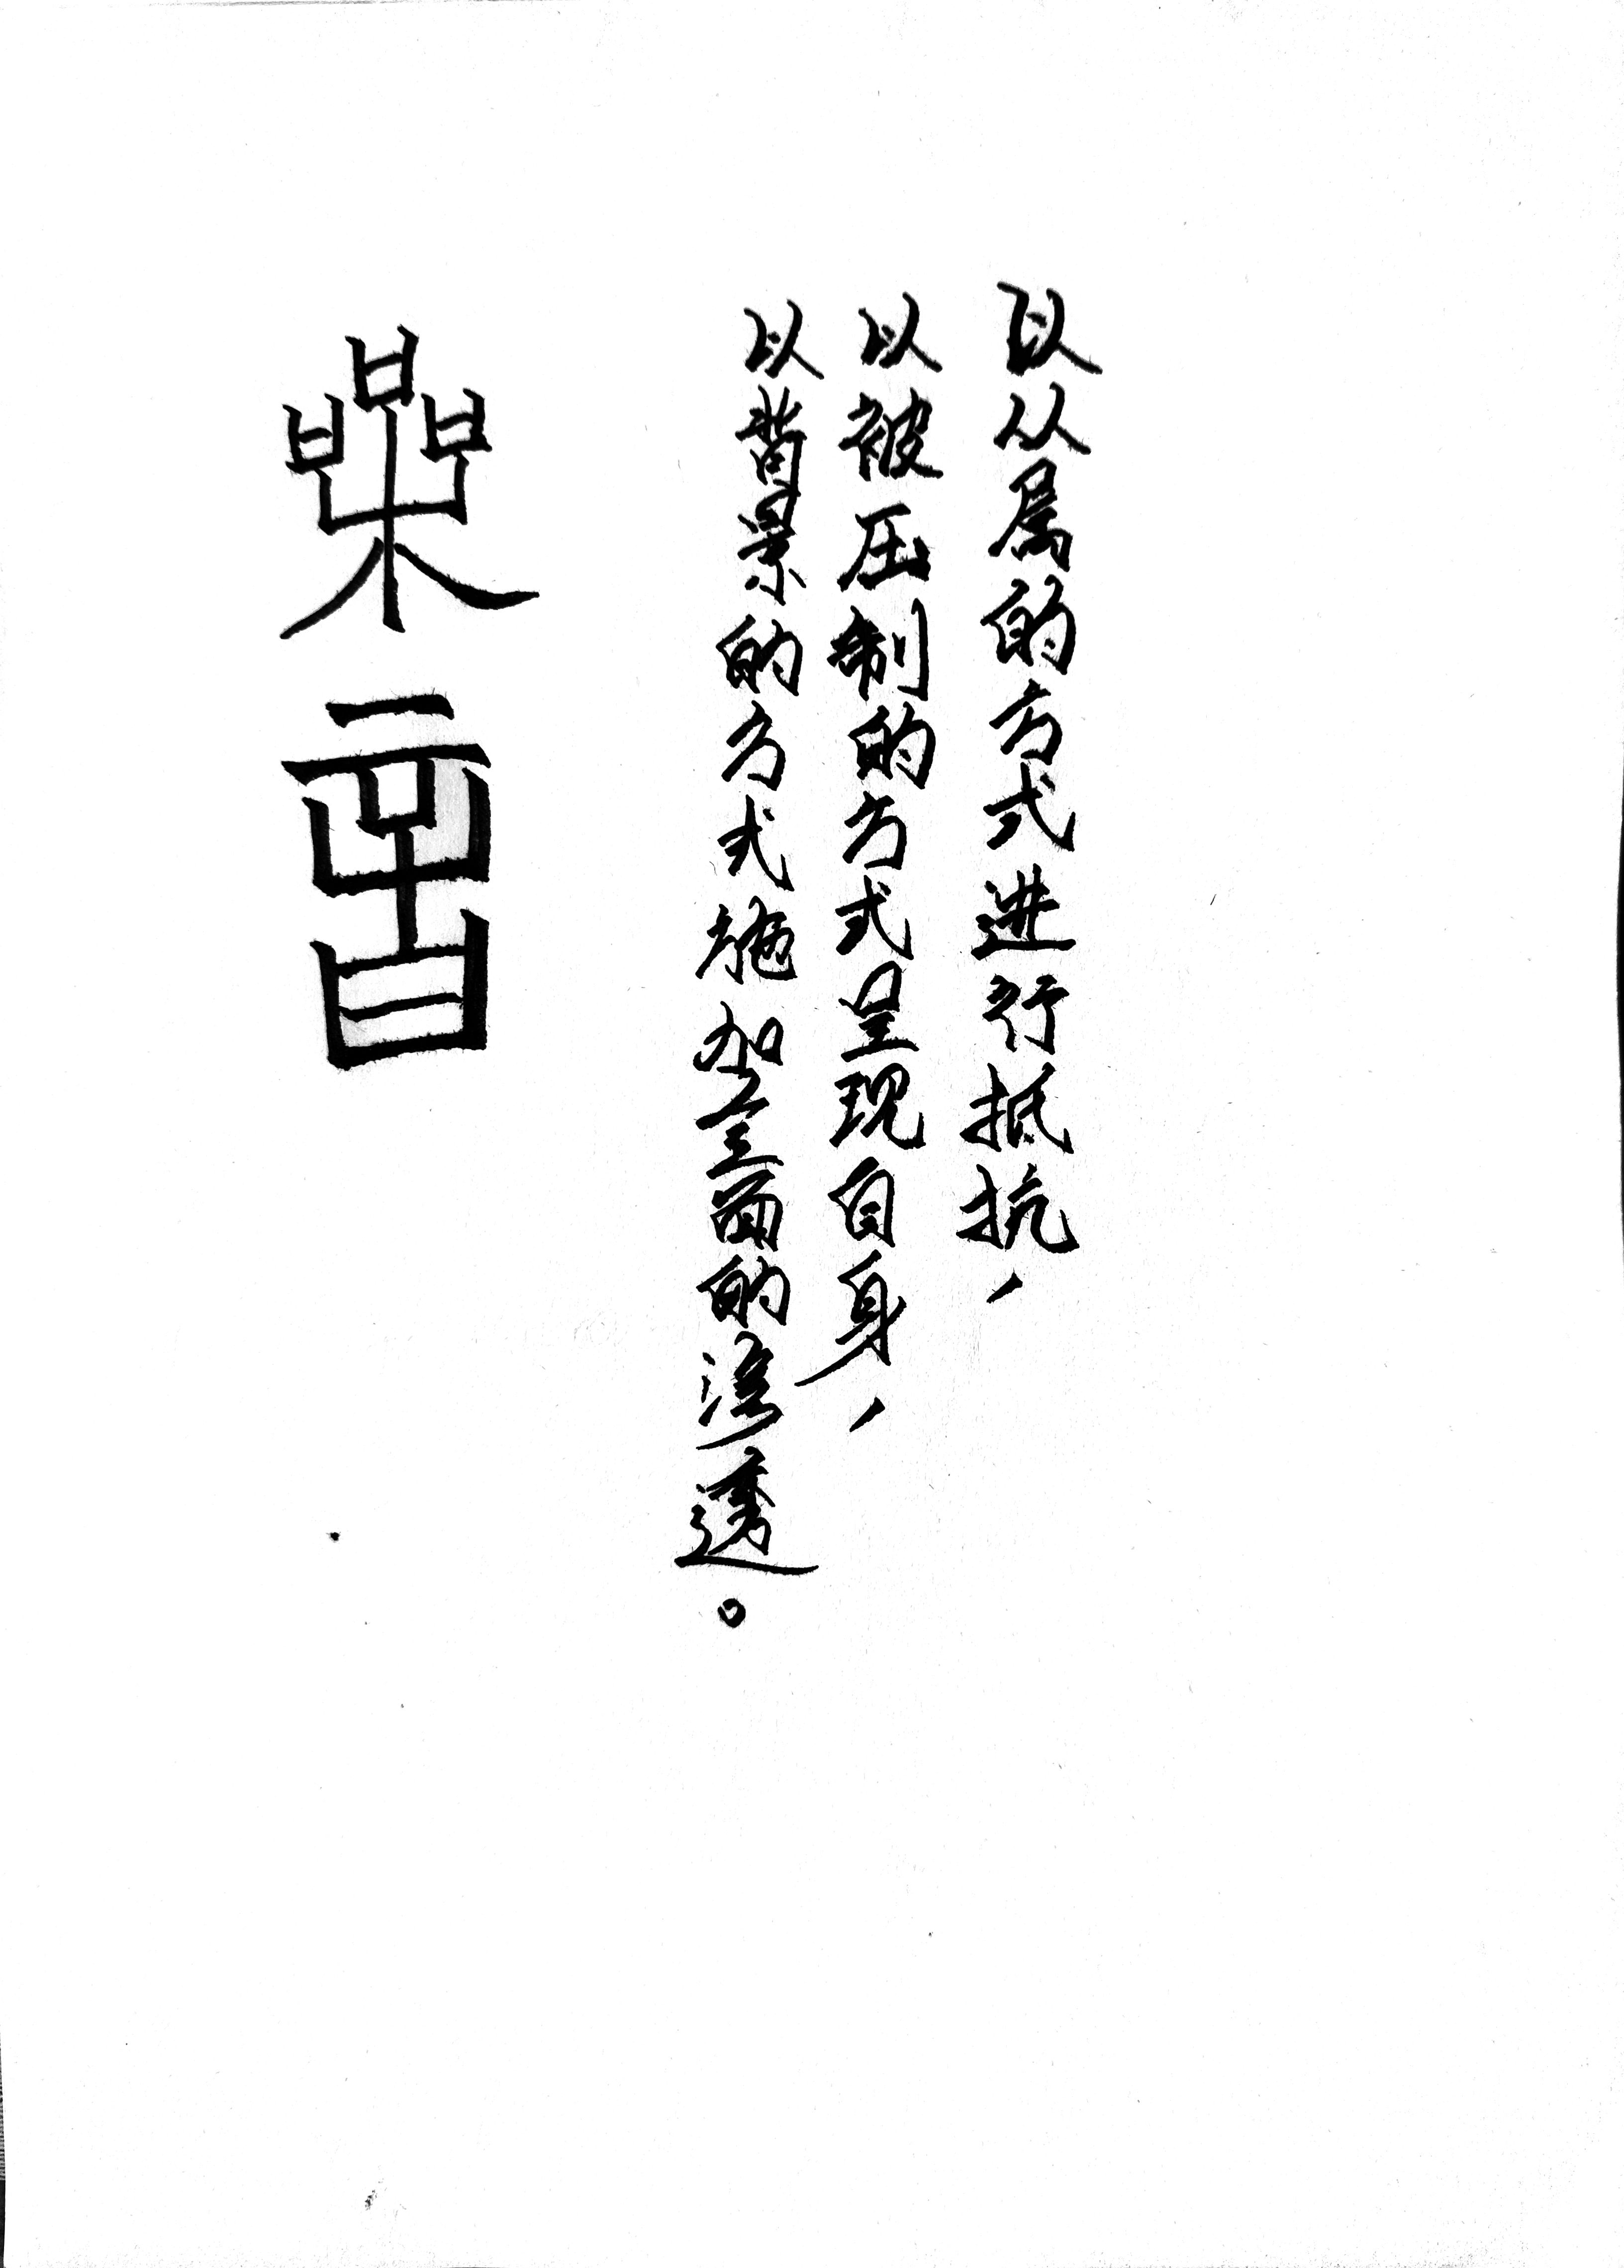 以从属的方式进行抵抗，
以被压制的方式呈现自身，
以背景的方式施加全面的渗透。